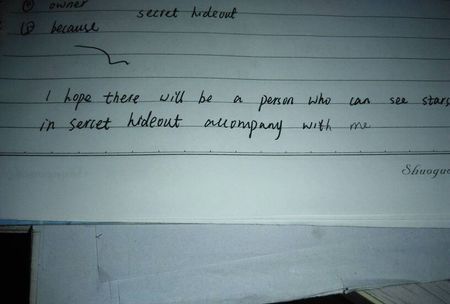 ① owner
secret hideout
② because
I hope there will be a person who can see stars
in sercet hideout accompany with me
Shuogu